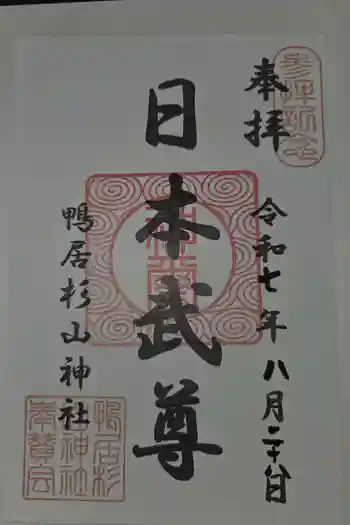 参拝記念
奉拝
令和七年八月二十八日
日本武尊
鴨居杉山神社
鴨居杉
山神社
奉賛会